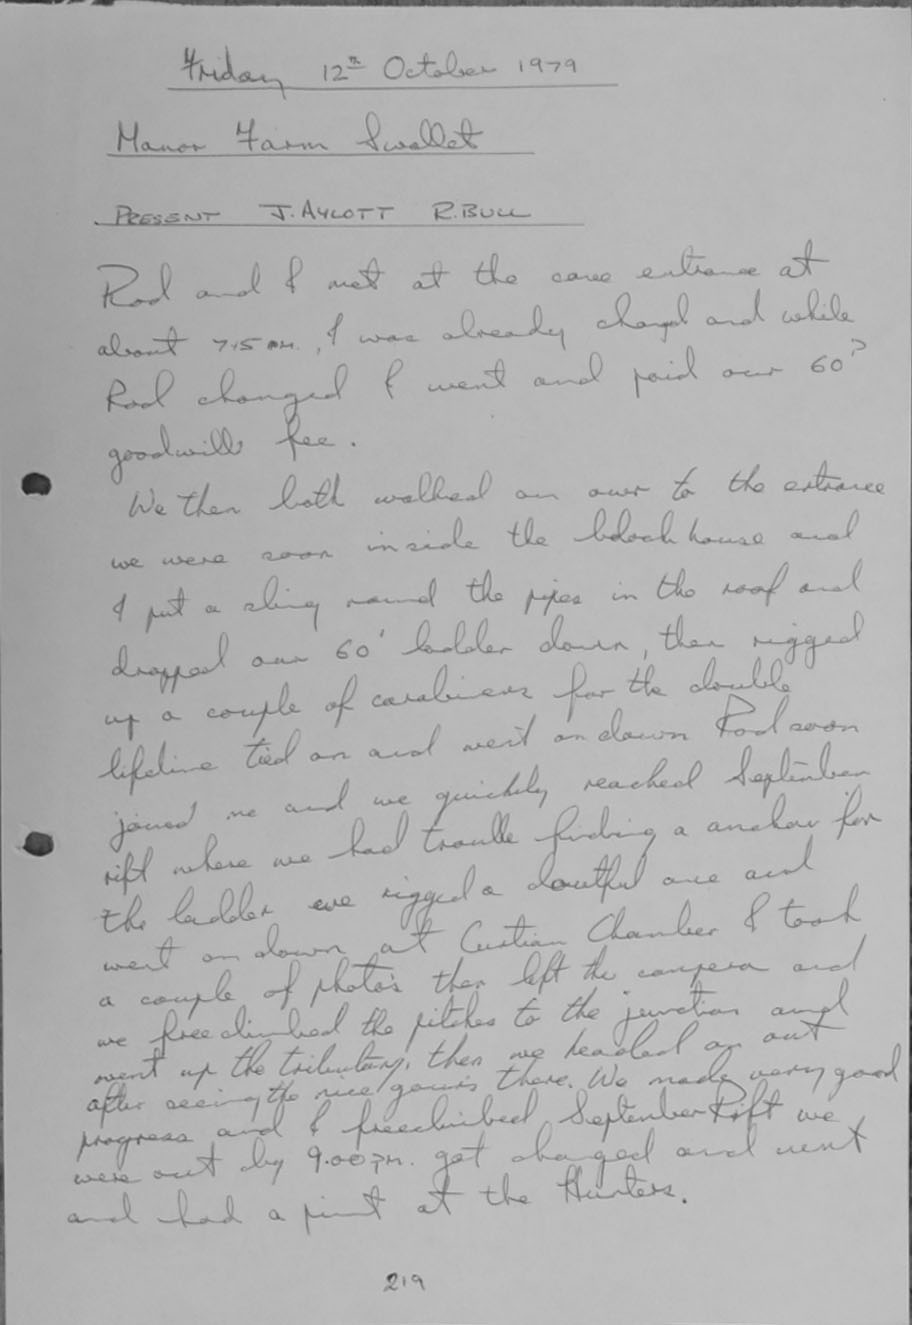 Friday 12th October 1979
Manor Farm Swallet
PRESENT J. AYLOTT R. BULL
Rod and I met at the cave entrance at
about 7.15 PM., I was already changd and while
Rod changed I went and paid our 60P
goodwill fee.
We then both walked on over to the entrance
we were soon inside the block house and
I put a sling round the pipes in the roof and
dropped our 60' ladder down, then rigged
up a couple of carabiners for the double
lifeline tied on and went on down Rod soon
joined me and we quickly reached September
rift where we had trouble finding a anchor for
the ladder we rigged a doutful one and
went on down at Curtian Chamber I took
a couple of photos then left the camera and
we freeclimbed the pitches to the junction and
went up the tributary, then we headed on out
after seeing the nice gours there. We made very good
progress and I freeclimbed September Rift we
were out by 9.00 PM. got changed and went
and had a pint at the Hunters.
219